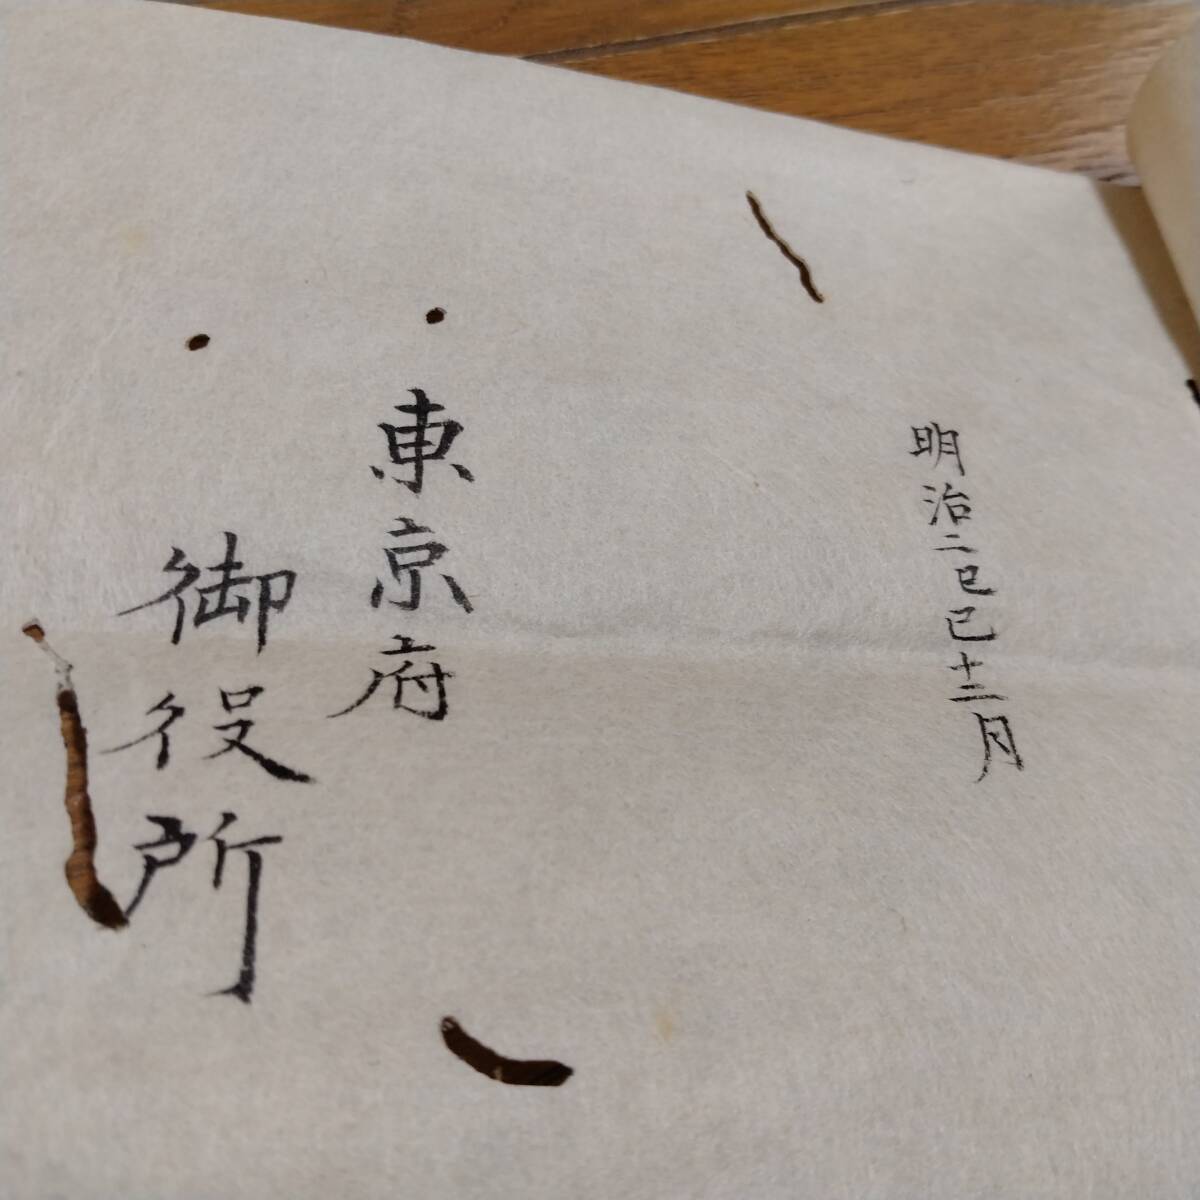 明治二己巳十二月
東京府
御役所